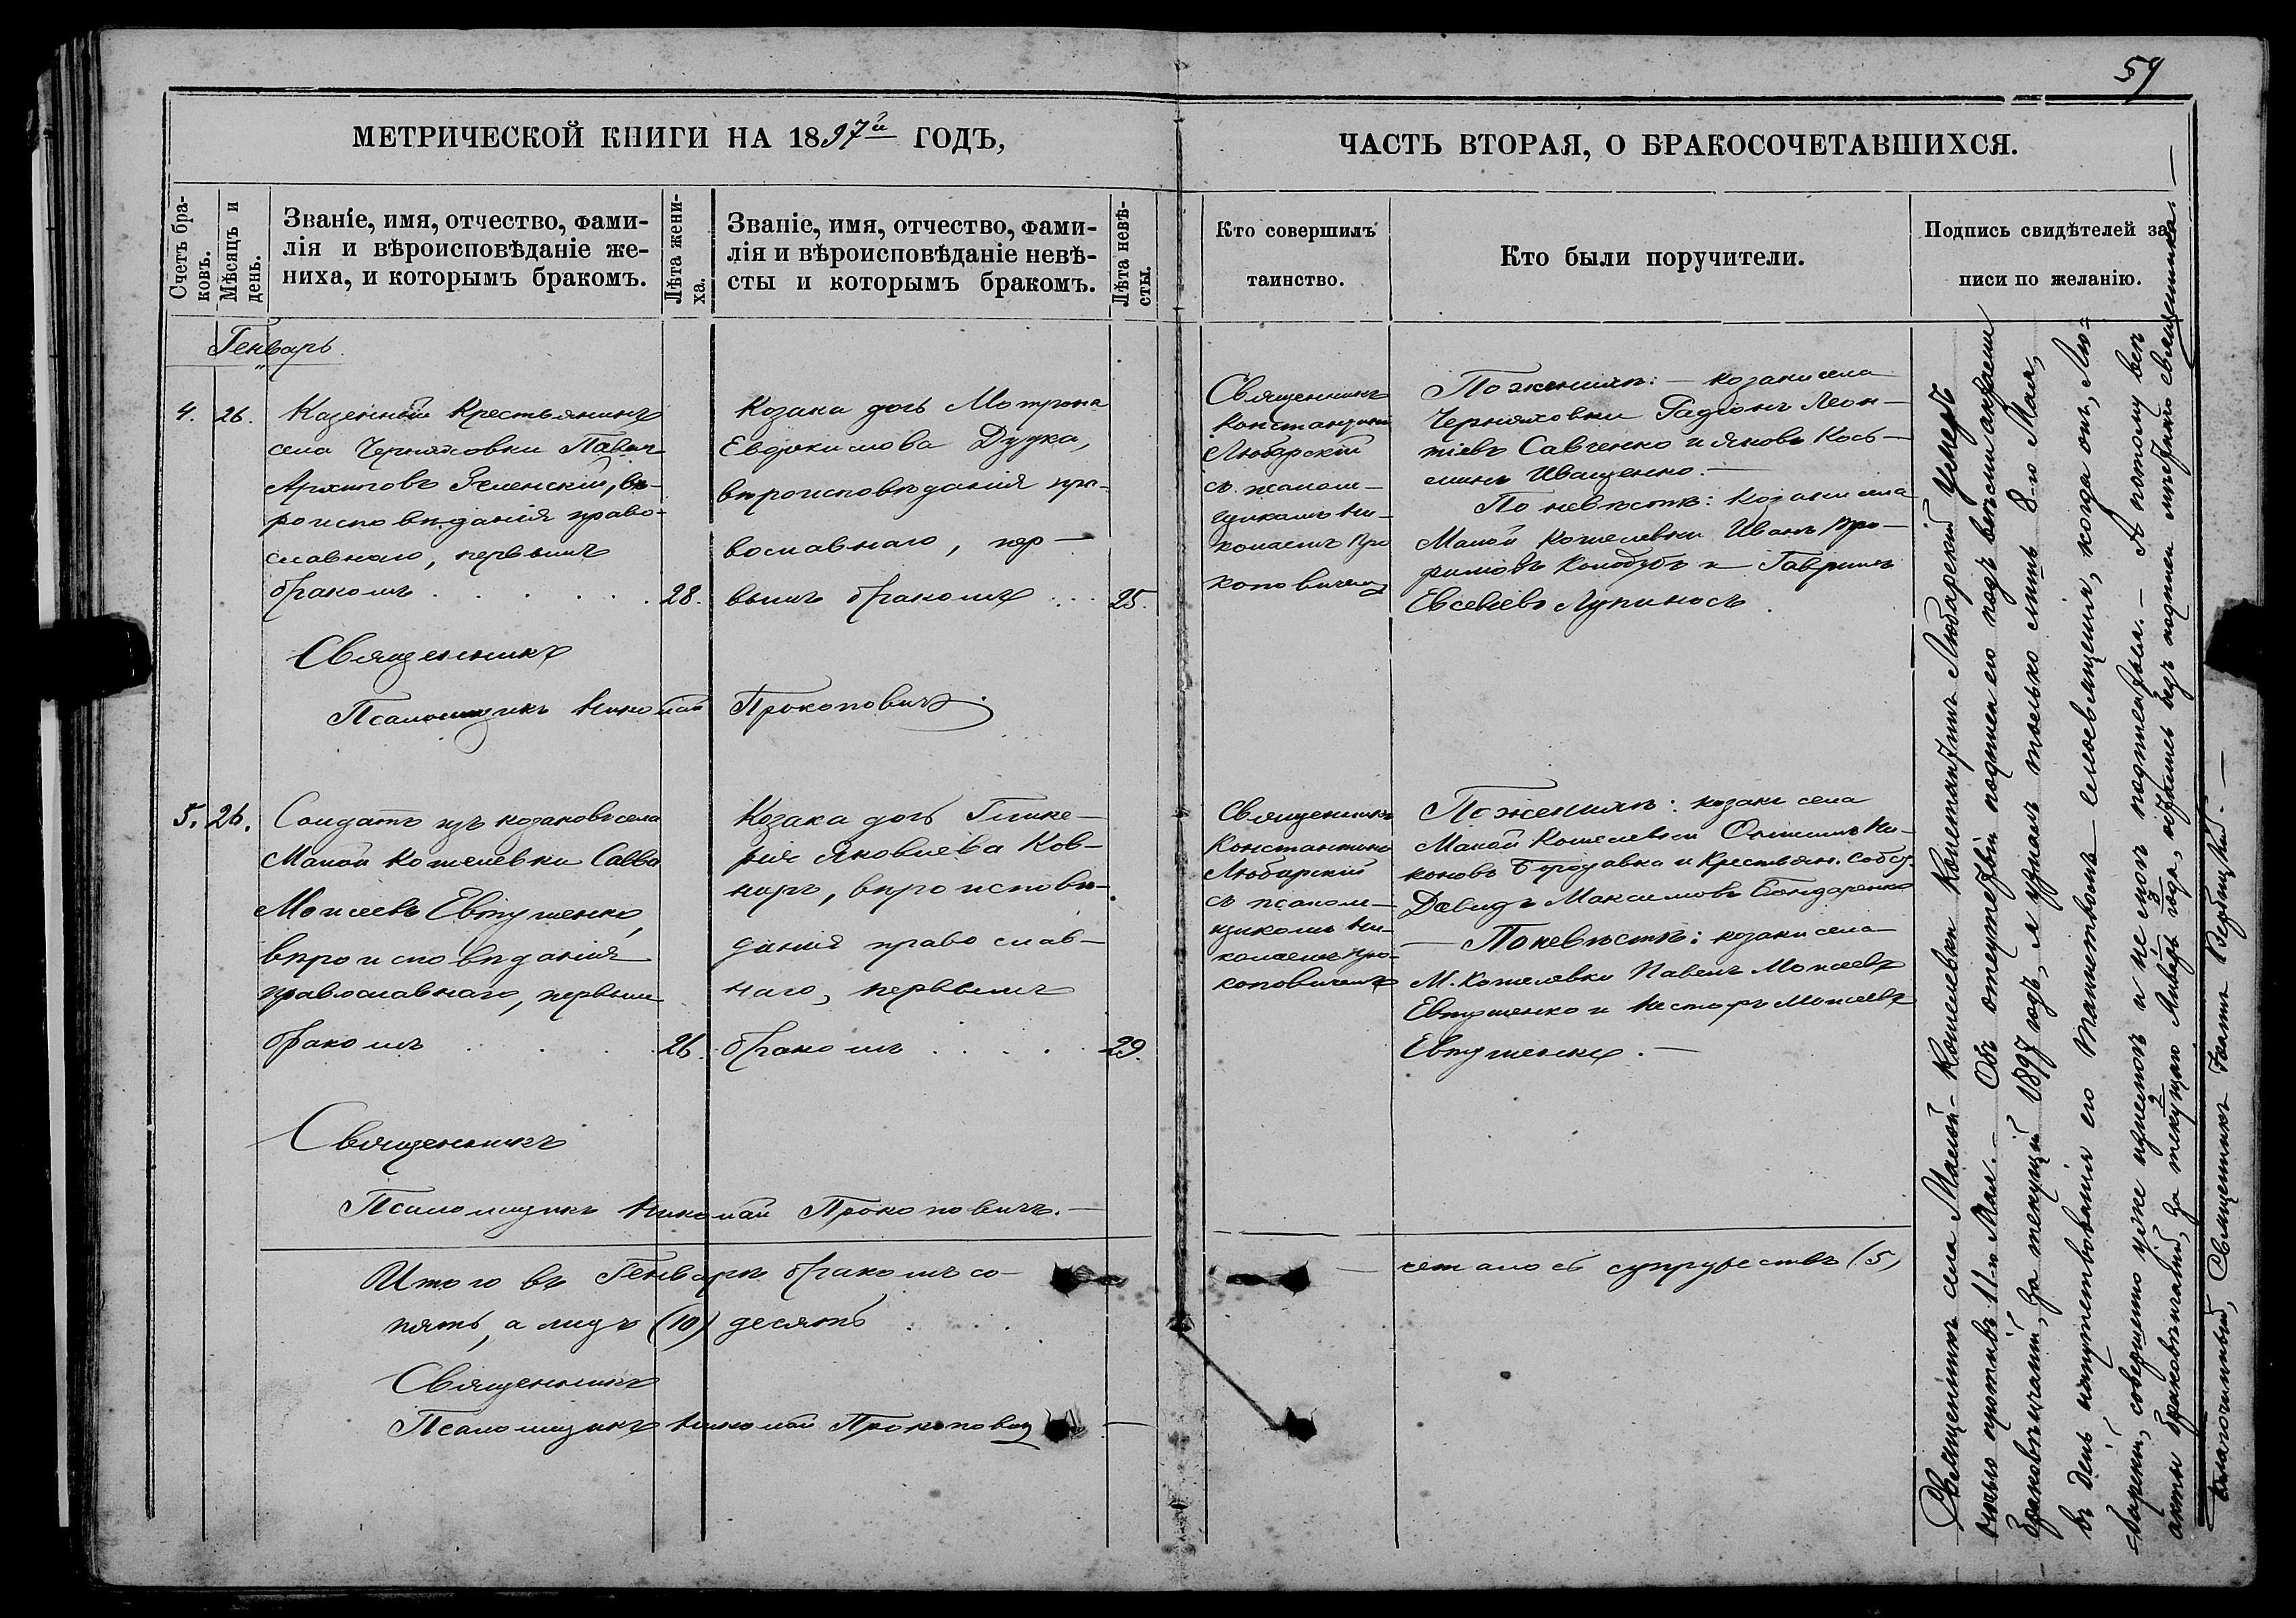 59
МЕТРИЧЕСКОЙ КНИГИ НА 1897й ГОДЪ,
ЧАСТЬ ВТОРАЯ, О БРАКОСОЧЕТАВШИХСЯ.
Счетъ бра-
ковъ.
Мѣсяцъ и
день.
Званіе, имя, отчество, фами-
лія и вѣроисповѣданіе же-
ниха, и которымъ бракомъ.
Лѣта жени-
ха.
Званіе, имя, отчество, фами-
лія и вѣроисповѣданіе невѣ-
сты и которымъ бракомъ.
Лѣта невѣ-
сты.
Кто совершилъ
таинство.
Кто были поручители.
Подпись свидѣтелей за
писи по желанію.
Генварь.
4.
26.
Казенный Крестьянинъ
села Черняховки Павелъ
Архиповъ Зеленскій, вѣ-
роисповѣданія право-
славнаго, первымъ
бракомъ
28.
Козака дочь Мотрона
Евдокимова Дудка,
вѣроисповѣданія пра-
вославнаго, пер-
вымъ бракомъ
25.
Священникъ
Константинъ
Любарскій
съ псалом-
щикомъ Ни-
колаемъ Про
коповичемъ
По женихѣ: — козаки села
Черняховки Радіонъ Леон-
тіевъ Савченко и Яковъ Кось-
минъ Иващенко. —
По невѣстѣ: Козаки села
Малой Кошелевки Иванъ Тро-
фимовъ Колодубъ и Гавріилъ
Евсевіевъ Лупиносъ.
Священникъ
Псаломщикъ Николай Прокоповичъ
5.
26.
Солдатъ изъ козаковъ села
Малой Кошелевки Савва
Моисеевъ Евтушенко,
вѣроисповѣданія
православнаго, первымъ
бракомъ
26.
Козака дочь Глике-
рія Яковлева Ков-
нирг, вѣроисповѣ-
данія православ-
наго, первымъ
бракомъ
29.
Священникъ
Константинъ
Любарскій
съ псалом-
щикомъ Ни-
колаемъ Про-
коповичемъ
По женихѣ: козаки села
Малой Кошелевки Ни-
коновъ Бородавка и Крестьян. собст.
Давидъ Максимовъ Бондаренко
— По невѣстѣ: козаки села
М. Кошелевки Павелъ Моисеевъ
Евтушенко и Несторъ Моисеевъ
Евтушенко. —
Священникъ
Псаломщикъ Николай Прокоповичъ. —
Итого въ Генварѣ бракомъ со-
четалось супружествъ (5)
пять, а лицъ (10) десять
Священникъ
Псаломщикъ Николай Прокоповичъ
Священникъ села Малой-Кошелевки Константинъ Любарскій умеръ
ночью противъ 11-го Мая. — Объ отсутствіи подписи его подъ всѣми актами
бракосочетаній, за текущій 1897 годъ, я узналъ только лишь 8-го Мая,
въ день напутствованія его Таинствомъ елеосвященія, когда онъ, Лю=
=барскій, совершенно уже изнемогъ и не могъ подписаться. — А потому всѣ
акты бракосочетаній, за текущаго Январь года, остались безъ подписи мѣстнаго священника. —
Благочинный, Священникъ Іоаннъ Вербицкій. —